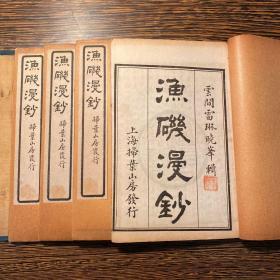 雲間雷琳曉峯輯
漁磯漫鈔
上海掃葉山房發行
漁磯漫鈔
掃葉山房發行
漁磯漫鈔
掃葉山房發行
漁磯漫鈔
掃葉山房發行